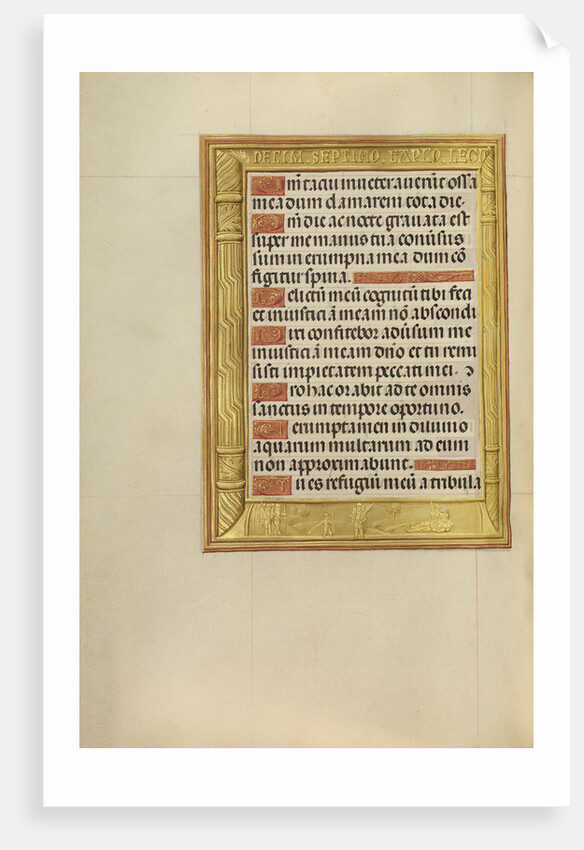 DECIM. SEPTIMO. CAPLO. LECT
Qm̄ tacui inveteraverūt ossa
mea dum clamarem tota die.
Qm̄ die ac nocte gravata est
super me manus tua conūsus
sum in erumpna mea dum cō
figitur spina.
Delictū meū cognitū tibi feci
et iniusticiā meam nō abscondi
Dixi confitebor adūsum me
iniusticiā meam dn̄o et tu remi
sisti impietatem peccati mei.
Pro hac orabit ad te omnis
sanctus in tempore oportuno.
Verumptamen in diluvio
aquarum multarum ad eum
non approximabunt.
Tu es refugiū meū a tribula